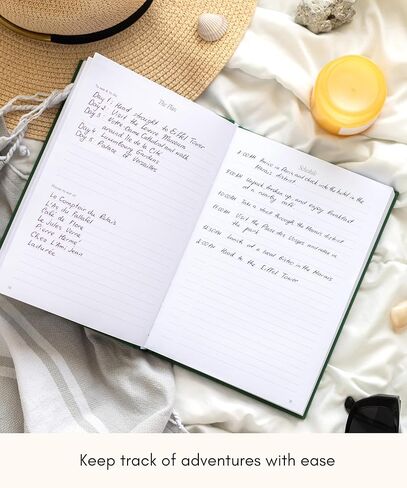 The Plan
Day 1: Head straight to Eiffel Tower
Day 2: Visit the Louvre Museum
Day 3: Notre Dame Cathedral and walk
around Île de la Cité
Day 4: Luxembourg Gardens
Day 5: Palace of Versailles
Places to eat at:
Le Comptoir du Relais
L'As du Fallafel
Café de Flore
Le Jules Verne
Pierre Hermé
Chez L'Ami Jean
Ladurée
Schedule
8:00AM Arrive in Paris and check into the hotel in the
Marais district
9:00AM Unpack, freshen up, and enjoy breakfast
at a nearby café
10:00AM Take a walk through the Marais district
11:00AM Visit the Place des Vosges and relax in
the park
12:00AM Lunch at a local bistro in the Marais
2:00AM Head to the Eiffel Tower
Keep track of adventures with ease